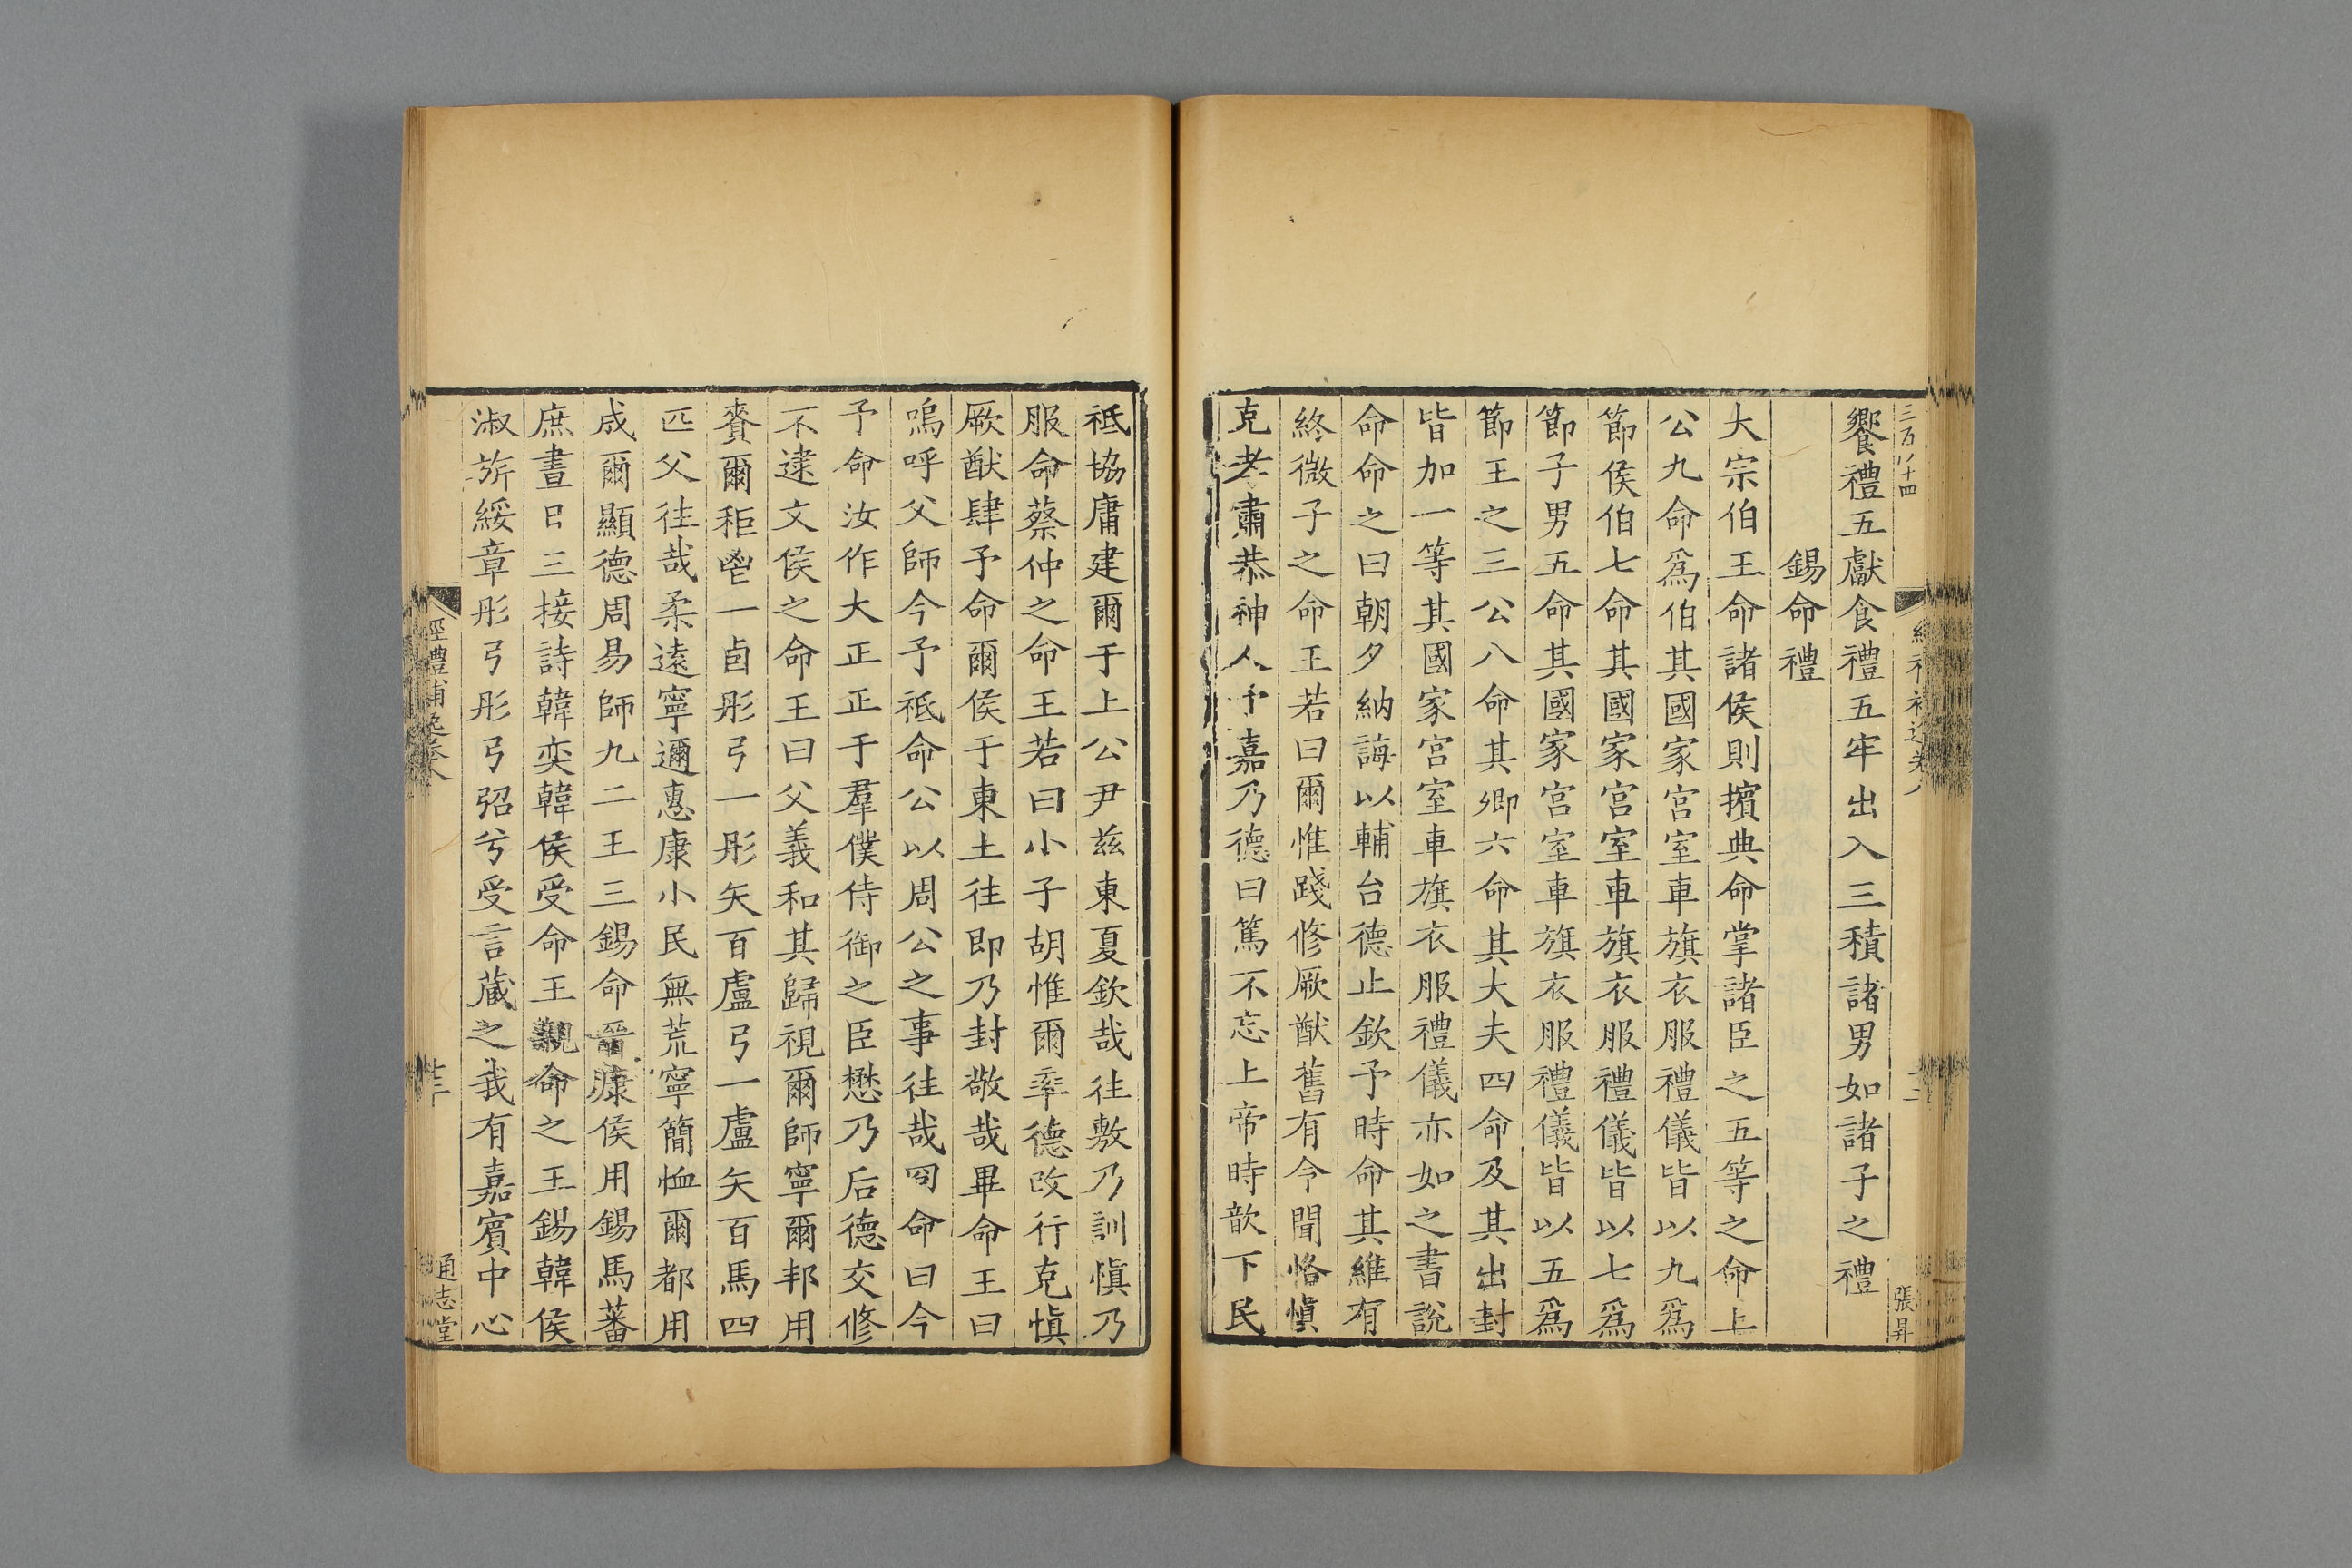 三百八十四
張昇
饗禮五獻食禮五牢出入三積諸男如諸子之禮
錫命禮
大宗伯王命諸侯則擯典命掌諸臣之五等之命上
公九命爲伯其國家宮室車旗衣服禮儀皆以九爲
節侯伯七命其國家宮室車旗衣服禮儀皆以七爲
節子男五命其國家宮室車旗衣服禮儀皆以五爲
節王之三公八命其卿六命其大夫四命及其出封
皆加一等其國家宮室車旗衣服禮儀亦如之書說
命命之曰朝夕納誨以輔台德止欽予時命其維有
終微子之命王若曰爾惟踐修厥猷舊有令聞恪愼
克孝肅恭神人予嘉乃德曰篤不忘上帝時歆下民
祗協庸建爾于上公尹茲東夏欽哉往敷乃訓愼乃
服命蔡仲之命王若曰小子胡惟爾率德改行克愼
厥猷肆予命爾侯于東土往即乃封敬哉畢命王曰
嗚呼父師今予祗命公以周公之事往哉冏命曰今
予命汝作大正正于羣僕侍御之臣懋乃后德交修
不逮文侯之命王曰父義和其歸視爾師寧爾邦用
賚爾秬鬯一卣彤弓一彤矢百盧弓一盧矢百馬四
匹父往哉柔遠寧邇惠康小民無荒寧簡恤爾都用
成爾顯德周易師九二王三錫命晉康侯用錫馬蕃
庶晝日三接詩韓奕韓侯受命王親命之王錫韓侯
淑旂綏章彤弓彤弓弨兮受言藏之我有嘉賓中心
經禮補逸卷八
通志堂